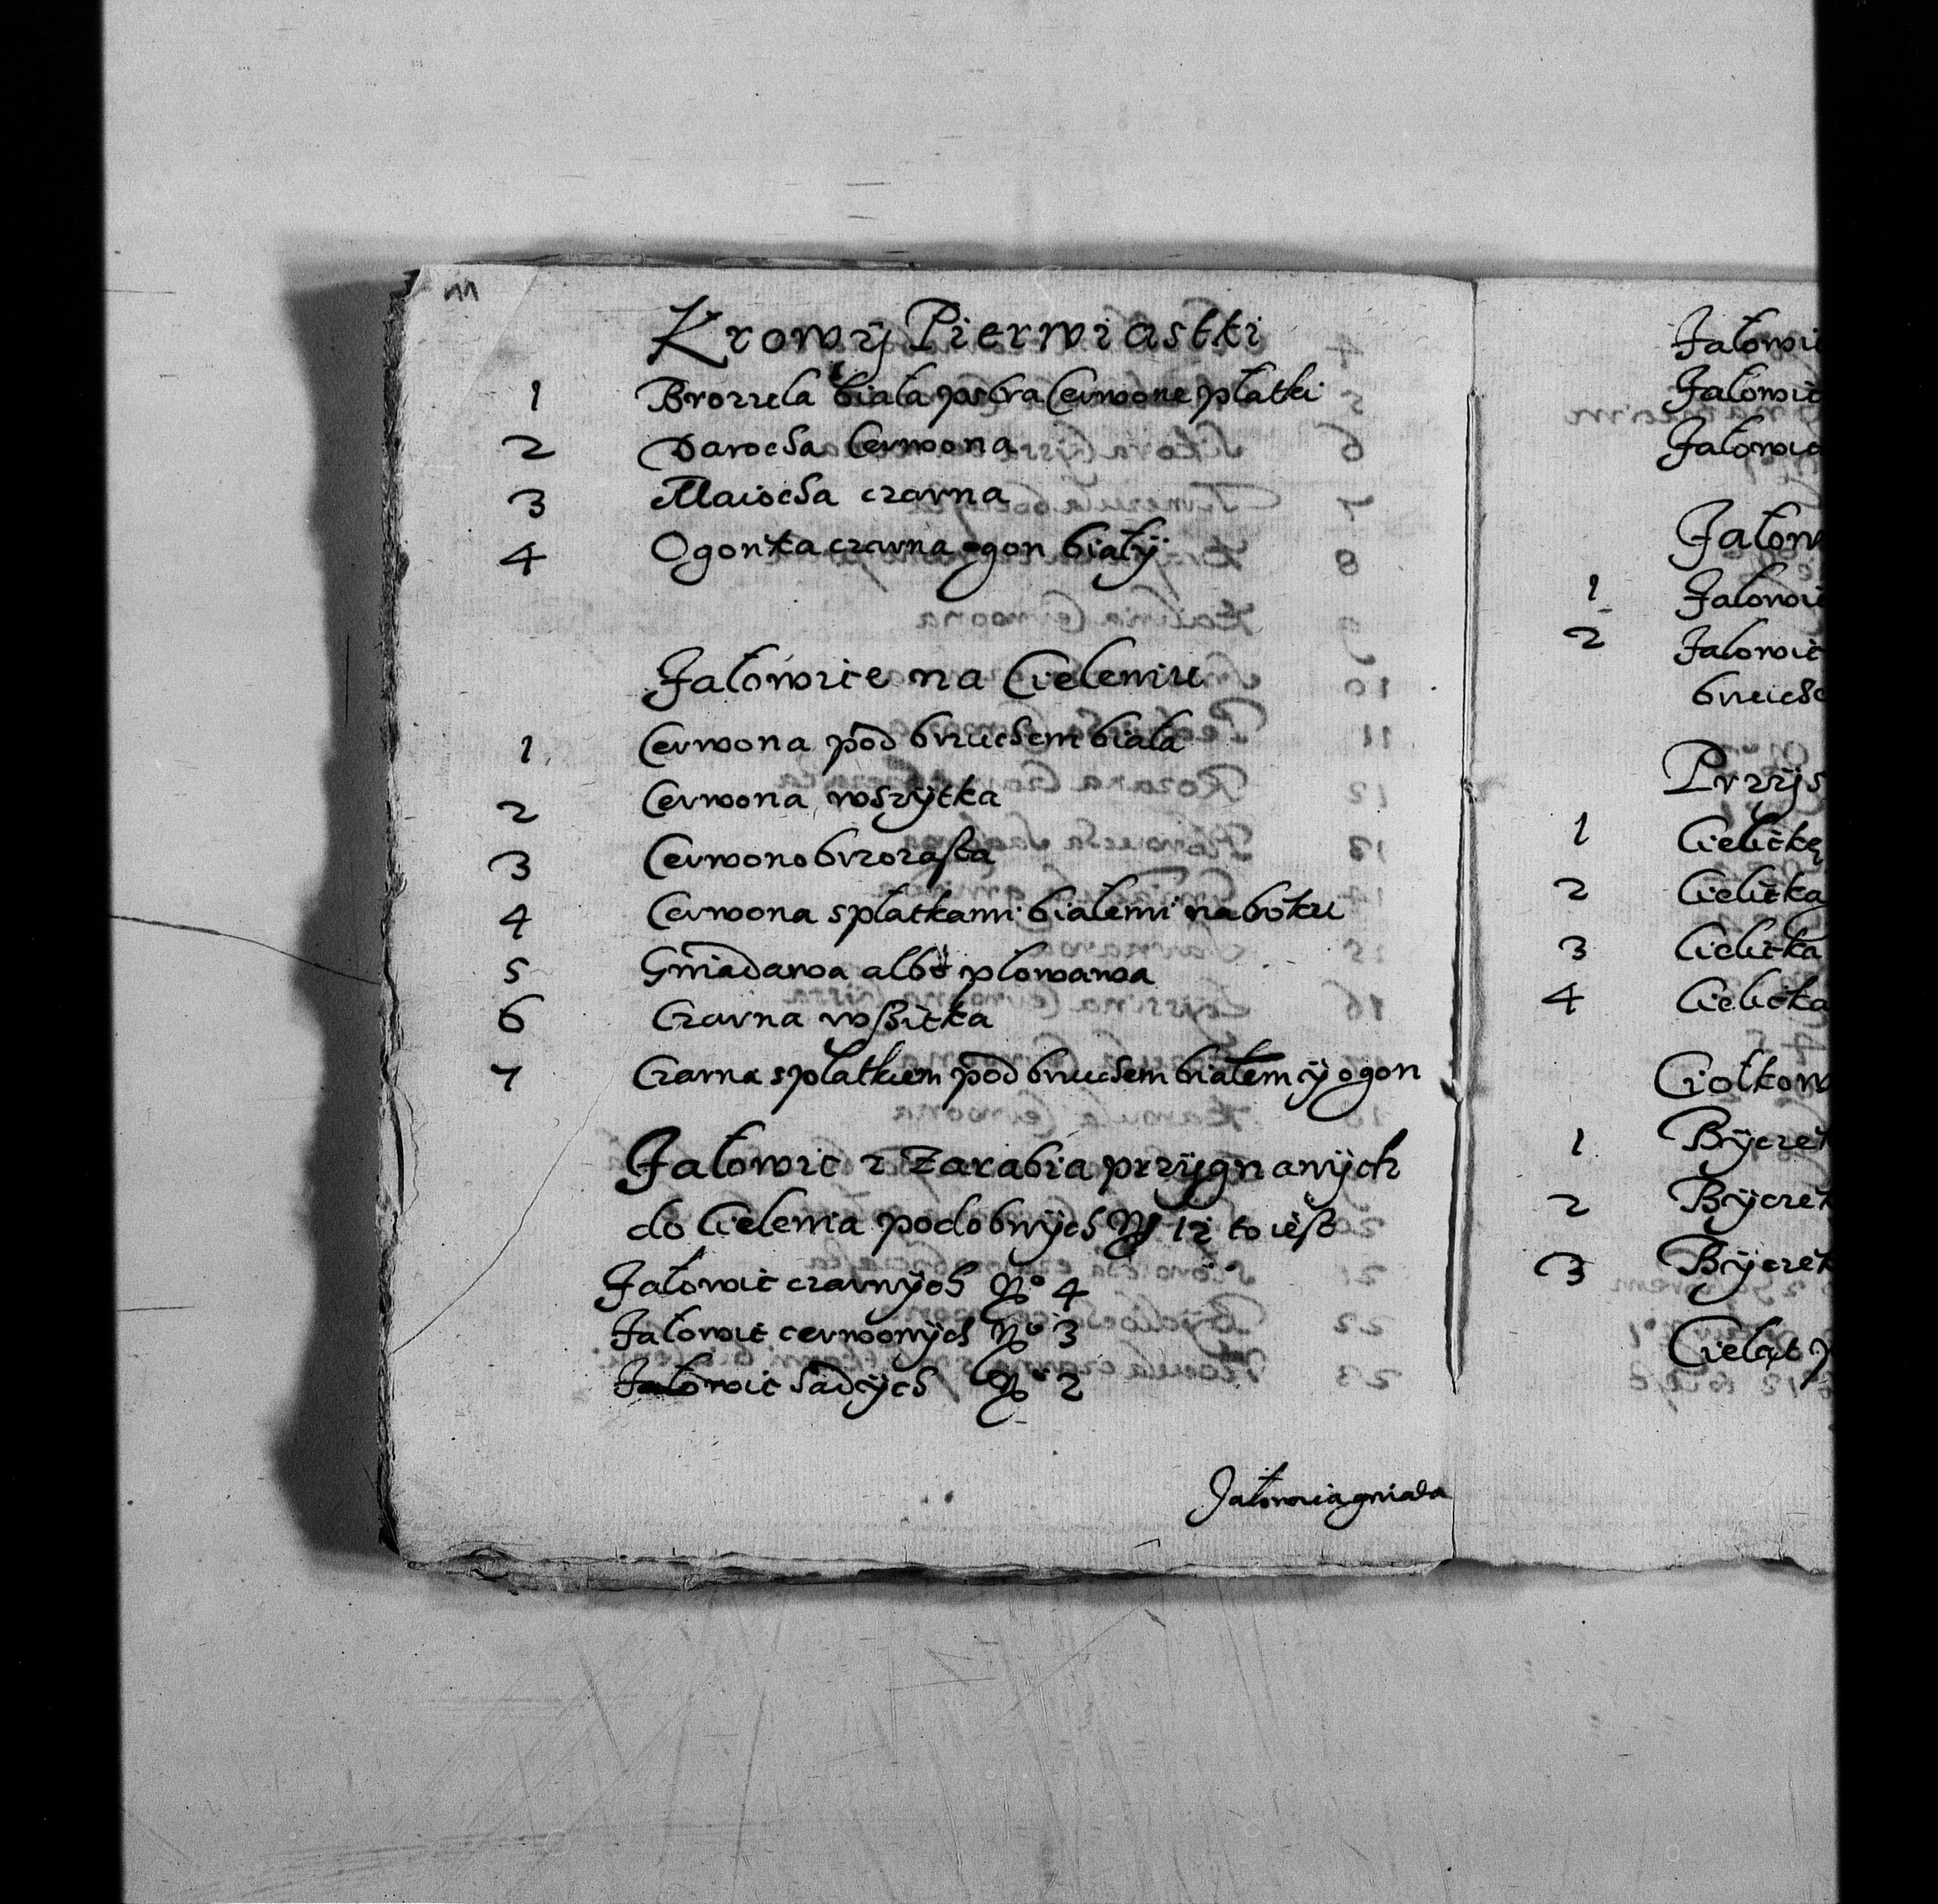 11
Krowÿ Pierwiastki
1 Brozula biała pstra Cerwone płatki
2 Darocha Cerwona
3 Maiocha czarna
4 Ogonka czarna ogon białÿ
Jałowice na Cieleniu
1 Cerwona pod brzuchem biała
2 Cerwona wszÿtka
3 Cerwonobrozasta
4 Cerwona s płatkami białemi na boku
5 Gniadawa albo płowawa
6 Czarna wszitka
7 Czarna s płatkiem pod bruchem białem ÿ ogon
Jałowic z Zarabia przÿgnanÿch
do Cielenia podobnÿch No 12 to iest
Jałowic czarnÿch No 4
Jałowic cerwonÿch No 3
Jałowic Sadÿch No 2
Jałowica gniada
Jałowi
Jałowic
Jałowic
Jałow
1 Jałowic
2 Jałowic
bruch
Przÿs
1 Cielickę
2 Cielicka
3 Cielicka
4 Cielicka
Ciołkow
1 Bÿczek
2 Bÿczek
3 Bÿczek
Cieląt